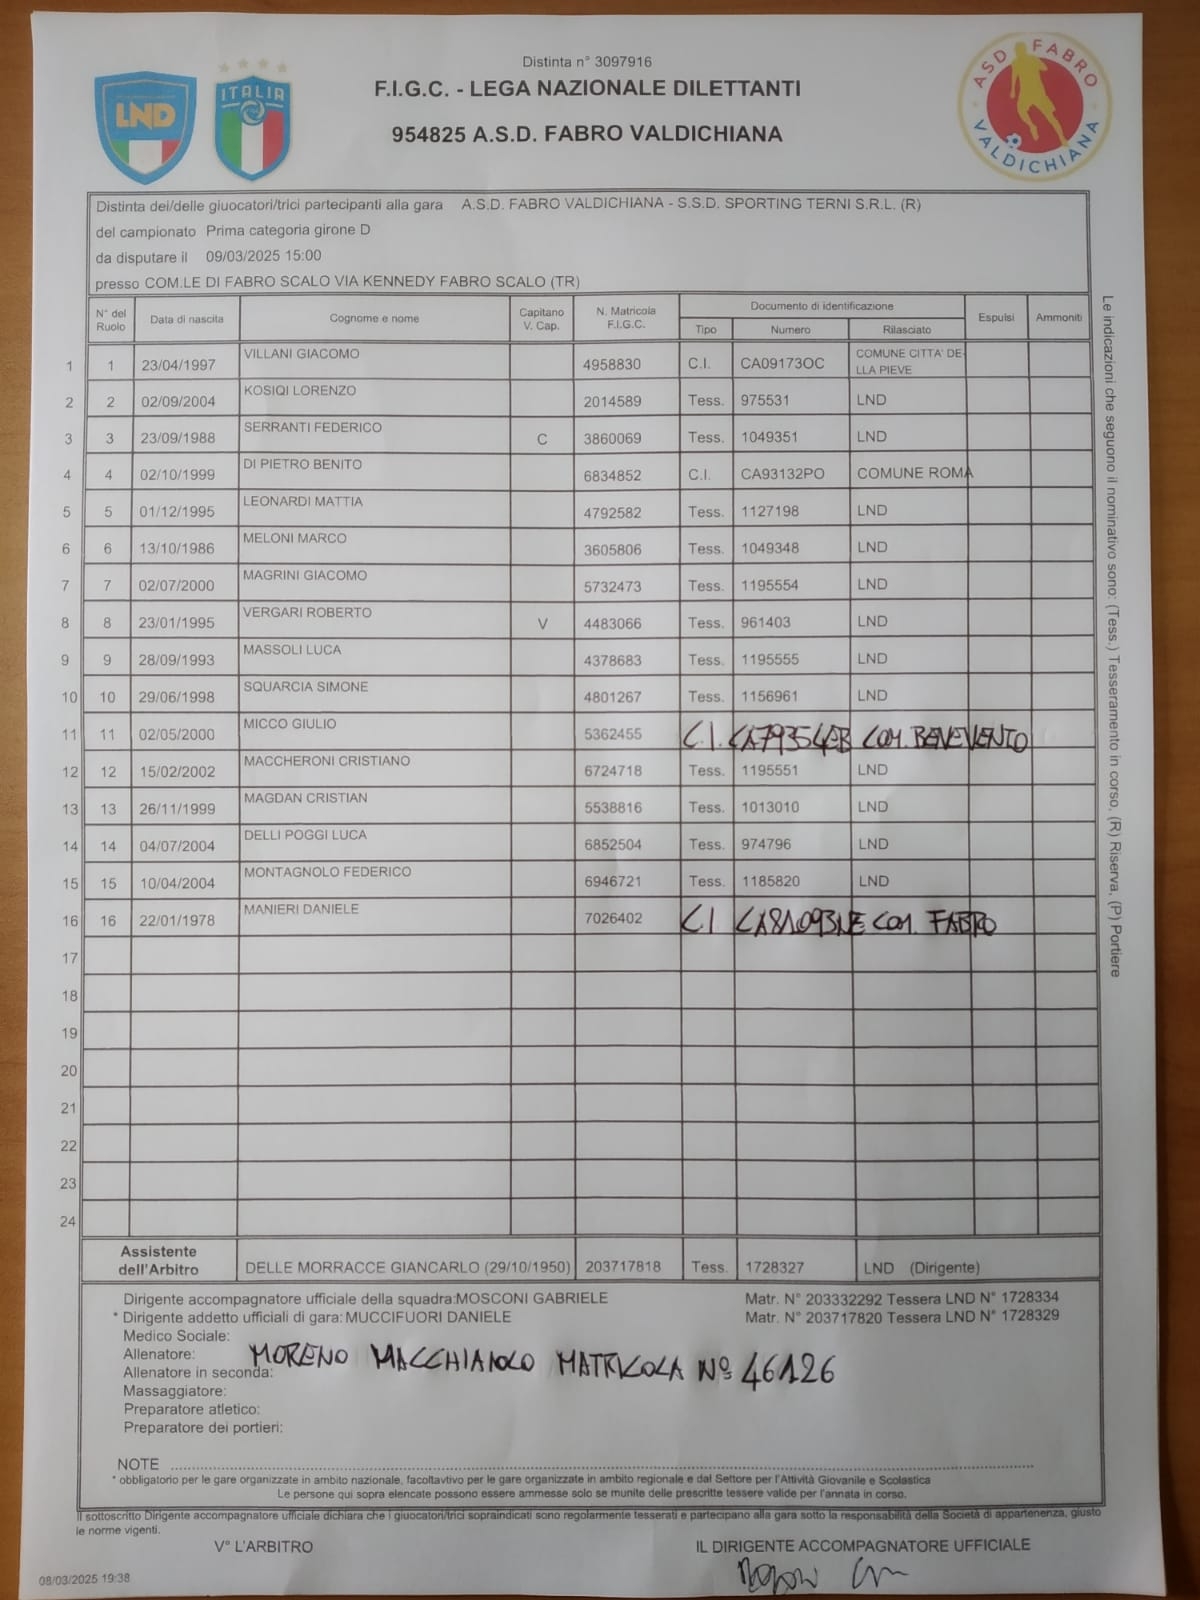 Distinta n° 3097916
F.I.G.C. - LEGA NAZIONALE DILETTANTI
954825 A.S.D. FABRO VALDICHIANA
LND
ITALIA
ASD FABRO VALDICHIANA
Distinta dei/delle giuocatori/trici partecipanti alla gara A.S.D. FABRO VALDICHIANA - S.S.D. SPORTING TERNI S.R.L. (R)
del campionato Prima categoria girone D
da disputare il 09/03/2025 15:00
presso COM.LE DI FABRO SCALO VIA KENNEDY FABRO SCALO (TR)
N° del Ruolo Data di nascita Cognome e nome Capitano V. Cap. N. Matricola F.I.G.C. Documento di identificazione Espulsi Ammoniti
Tipo Numero Rilasciato
1 1 23/04/1997 VILLANI GIACOMO 4958830 C.I. CA09173OC COMUNE CITTA' DE-
LLA PIEVE
2 2 02/09/2004 KOSIQI LORENZO 2014589 Tess. 975531 LND
3 3 23/09/1988 SERRANTI FEDERICO C 3860069 Tess. 1049351 LND
4 4 02/10/1999 DI PIETRO BENITO 6834852 C.I. CA93132PO COMUNE ROMA
5 5 01/12/1995 LEONARDI MATTIA 4792582 Tess. 1127198 LND
6 6 13/10/1986 MELONI MARCO 3605806 Tess. 1049348 LND
7 7 02/07/2000 MAGRINI GIACOMO 5732473 Tess. 1195554 LND
8 8 23/01/1995 VERGARI ROBERTO V 4483066 Tess. 961403 LND
9 9 28/09/1993 MASSOLI LUCA 4378683 Tess. 1195555 LND
10 10 29/06/1998 SQUARCIA SIMONE 4801267 Tess. 1156961 LND
11 11 02/05/2000 MICCO GIULIO 5362455 C.I. COM. BENEVENTO
12 12 15/02/2002 MACCHERONI CRISTIANO 6724718 Tess. 1195551 LND
13 13 26/11/1999 MAGDAN CRISTIAN 5538816 Tess. 1013010 LND
14 14 04/07/2004 DELLI POGGI LUCA 6852504 Tess. 974796 LND
15 15 10/04/2004 MONTAGNOLO FEDERICO 6946721 Tess. 1185820 LND
16 16 22/01/1978 MANIERI DANIELE 7026402 C.I. COM. FABRO
17
18
19
20
21
22
23
24
Assistente dell'Arbitro DELLE MORRACCE GIANCARLO (29/10/1950) 203717818 Tess. 1728327 LND (Dirigente)
Dirigente accompagnatore ufficiale della squadra:MOSCONI GABRIELE Matr. N° 203332292 Tessera LND N° 1728334
* Dirigente addetto ufficiali di gara: MUCCIFUORI DANIELE Matr. N° 203717820 Tessera LND N° 1728329
Medico Sociale:
Allenatore: MORENO MACCHIAIOLO MATRICOLA Nº 46126
Allenatore in seconda:
Massaggiatore:
Preparatore atletico:
Preparatore dei portieri:
NOTE
* obbligatorio per le gare organizzate in ambito nazionale, facoltavtivo per le gare organizzate in ambito regionale e dal Settore per l'Attività Giovanile e Scolastica
Le persone qui sopra elencate possono essere ammesse solo se munite delle prescritte tessere valide per l'annata in corso.
Il sottoscritto Dirigente accompagnatore ufficiale dichiara che i giuocatori/trici sopraindicati sono regolarmente tesserati e partecipano alla gara sotto la responsabilità della Società di appartenenza, giusto
le norme vigenti.
V° L'ARBITRO IL DIRIGENTE ACCOMPAGNATORE UFFICIALE
08/03/2025 19:38
Le indicazioni che seguono il nominativo sono: (Tess.) Tesseramento in corso, (R) Riserva, (P) Portiere